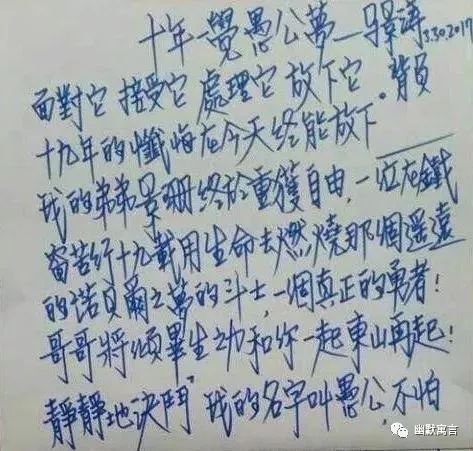 十年一覺愚公夢—景濤 3.30.2017
面對它 接受它 處理它 放下它。背負
十九年的懺悔在今天终能放下
我的弟弟景珊终於重獲自由,一位在鐵
窗苦行十九載用生命去燃燒那個遥遠
的諾貝爾之夢的斗士,一個真正的勇者!
哥哥將傾畢生功和你一起東山再起!
靜靜地決鬥" 我的名字叫愚公,不怕
幽默寓言